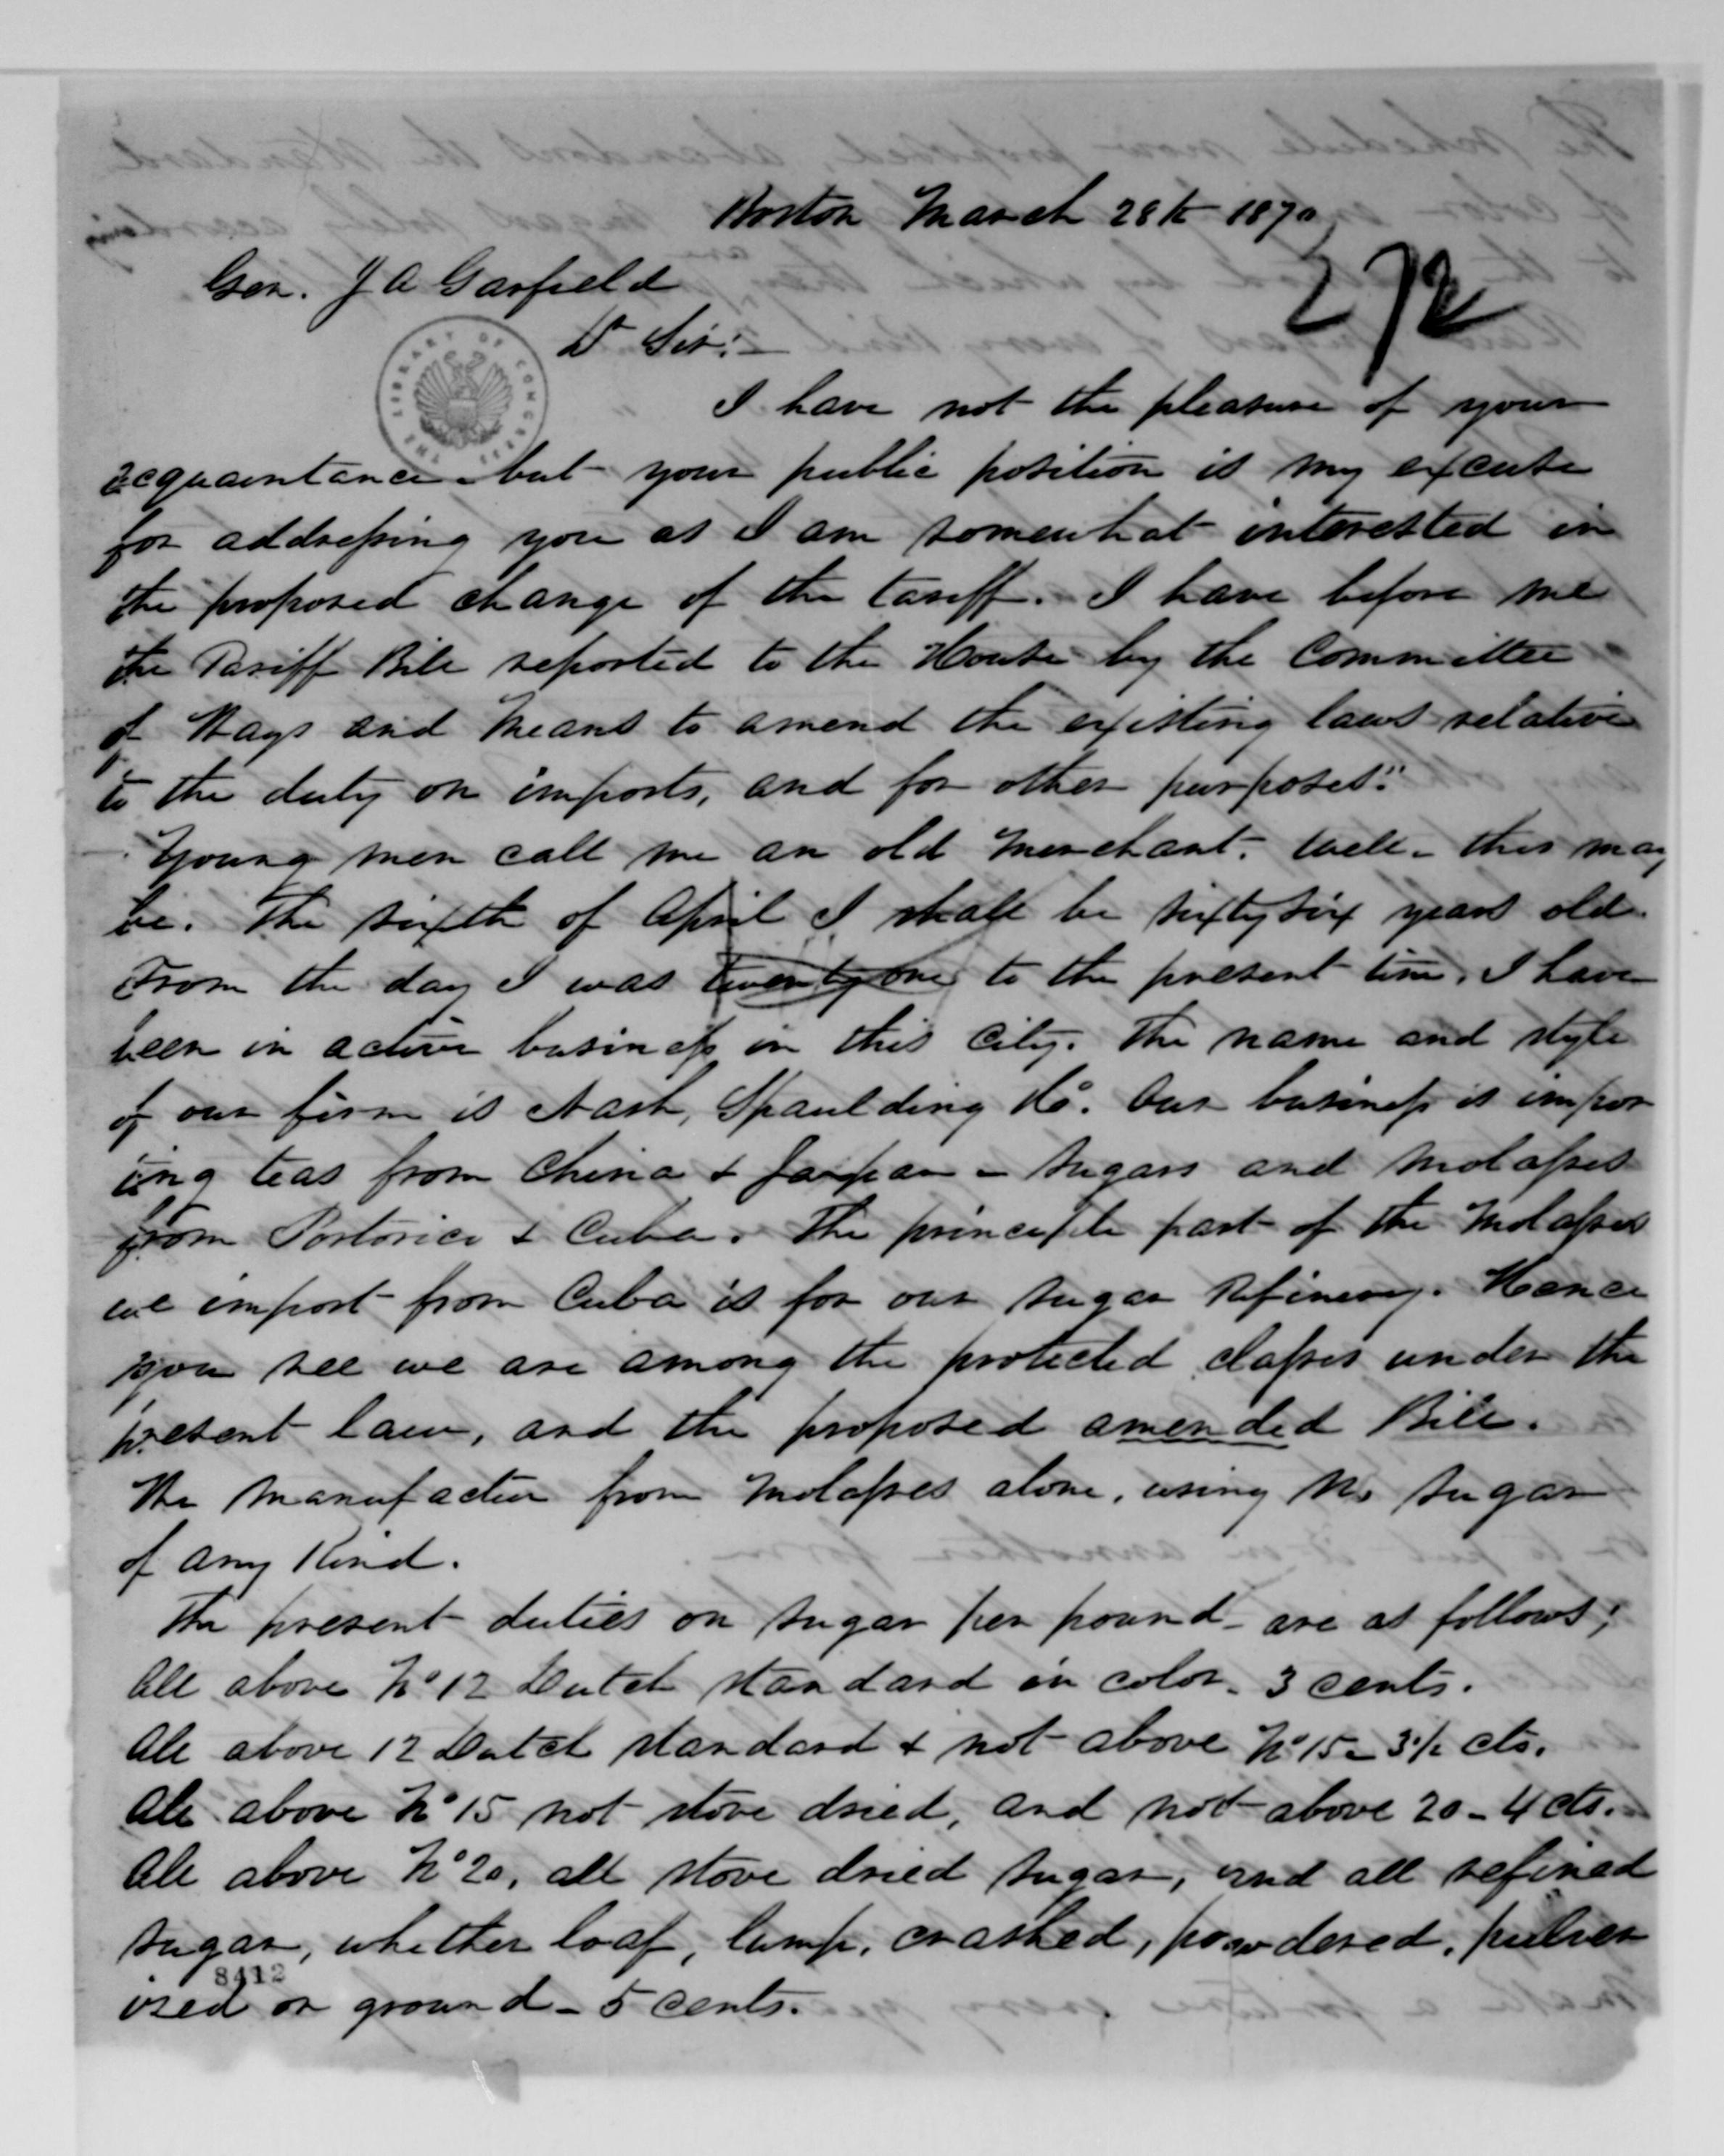 Boston March 28th 1870
272
Gen. J A Garfield
Dr Sir:-
THE LIBRARY OF CONGRESS
I have not the pleasure of your
acquaintance - but your public position is my excuse
for addressing you as I am somewhat interested in
the proposed change of the tariff. I have before me
the Tariff Bill reported to the House by the Committee
of Ways and Means to amend the existing laws relative
to the duty on imports, and for other purposes."
Young men call me an old Merchant. Well - this may
be. The sixth of April I shall be sixty six years old.
From the day I was twenty one to the present time, I have
been in active business in this City. The name and style
of our firm is Nash, Spaulding & Co. Our business is impor
ting teas from China & Japan - sugars and Molasses
from Portorico & Cuba. The principle part of the Molasses
we import from Cuba is for our Sugar Refinery. Hence
you see we are among the protected classes under the
present law, and the proposed amended Bill.
We manufactur from Molasses alone, using no sugar
of any Kind.
The present duties on sugar per pound - are as follows;
All above No 12 Dutch standard in color - 3 cents.
All above 12 Dutch standard & not above No 15 - 3 1/2 cts.
All above No 15 not stove dried, and not above 20 - 4 cts.
All above No 20, all stove dried sugar, and all refined
sugar, whether loaf, lump, crashed, powdered, pulver
ized or ground - 5 cents.
8412